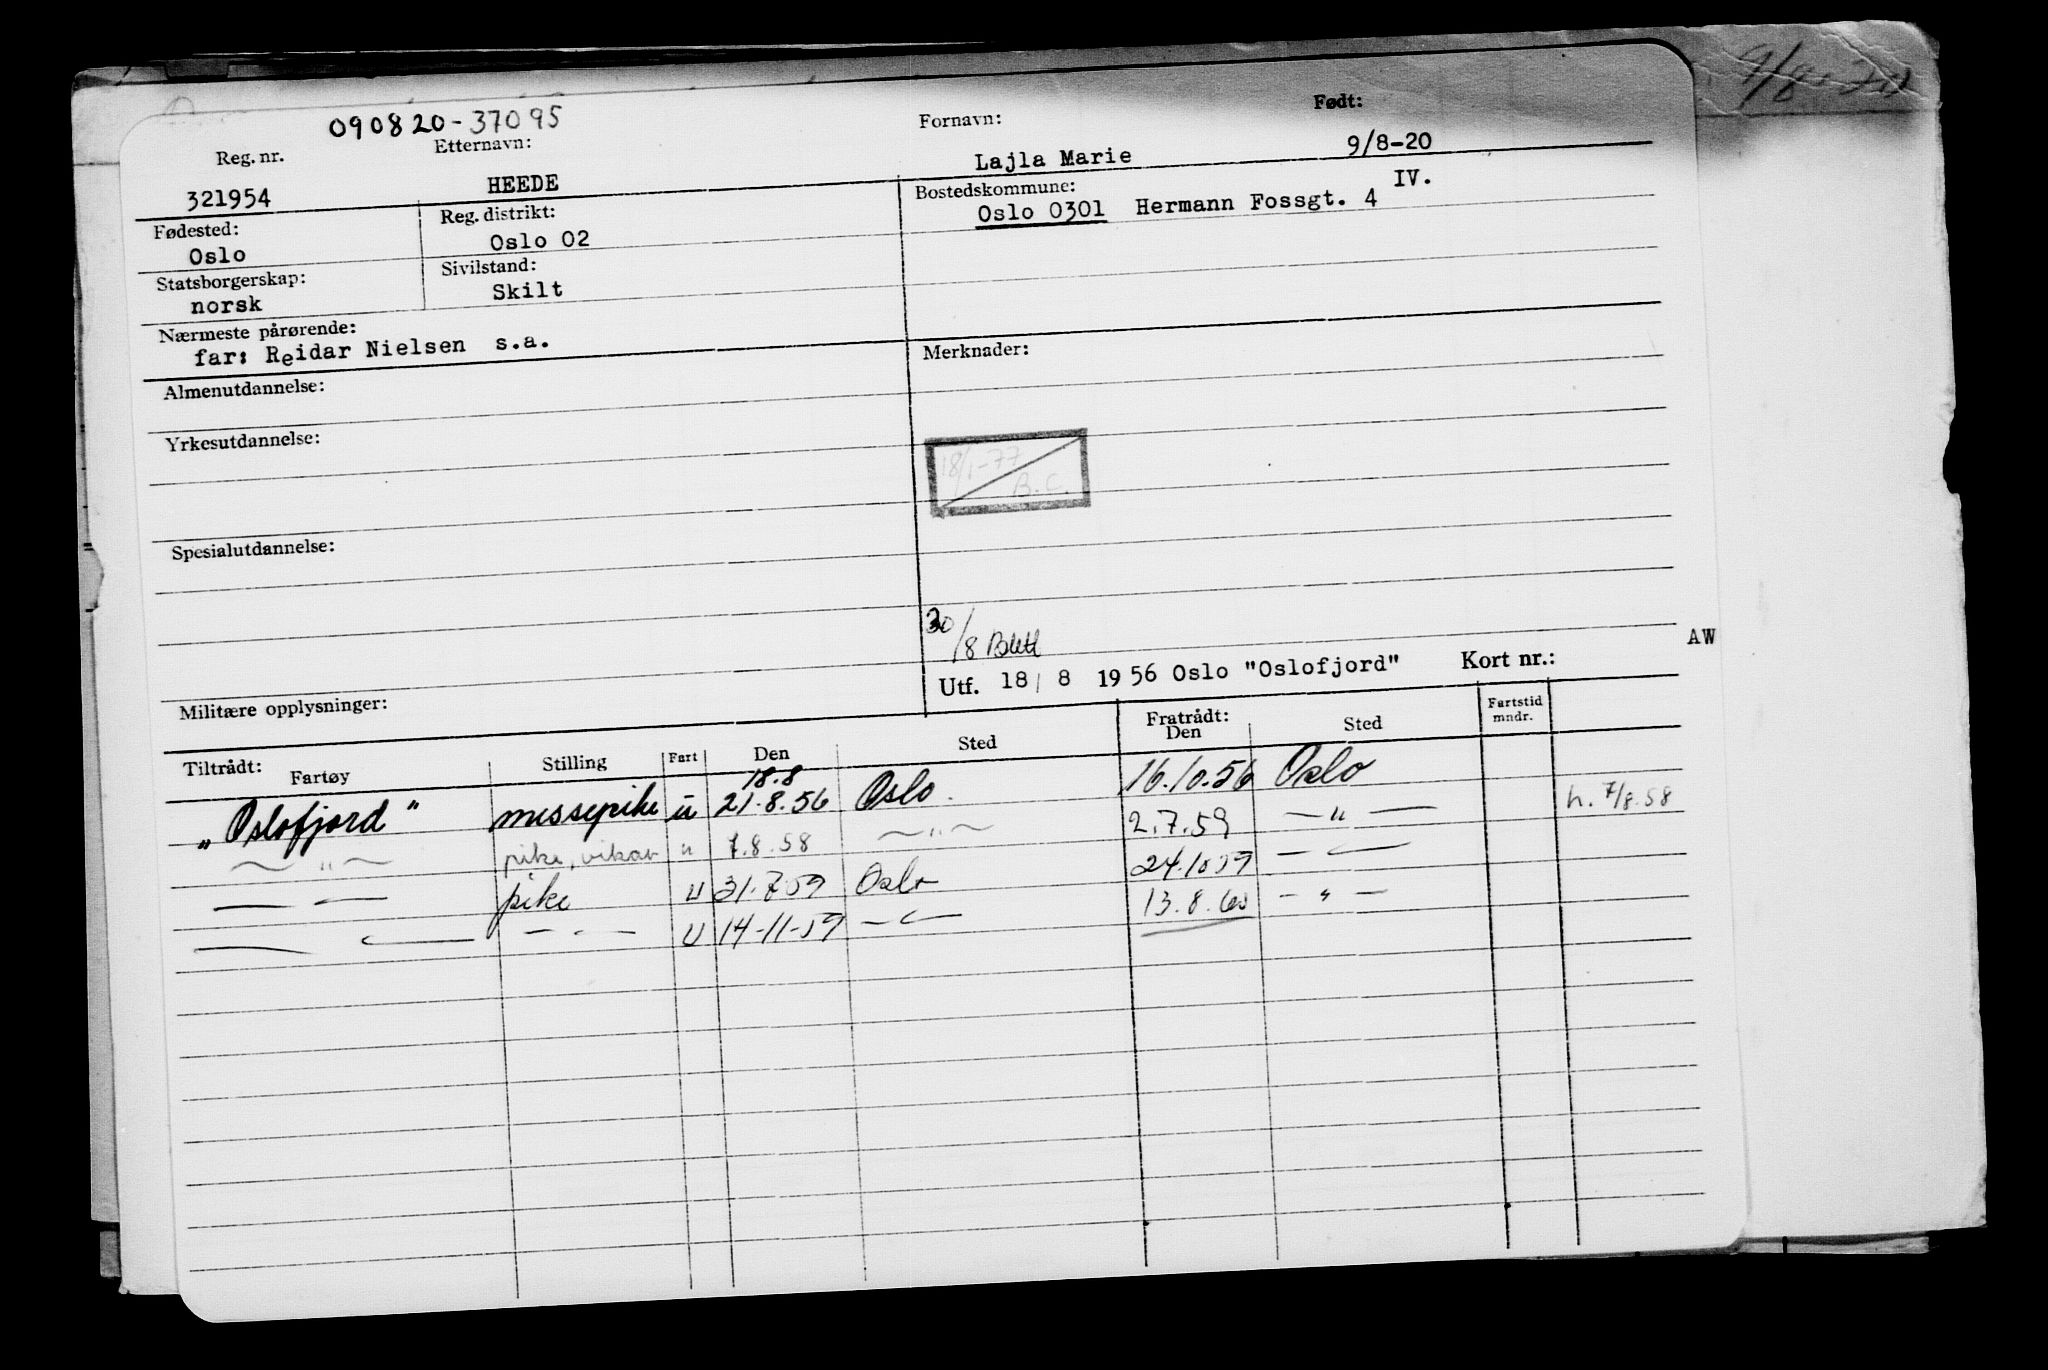 090820-37095
Reg. nr. Etternavn: Fornavn: Født:
321954 HEEDE Lajla Marie 9/8-20
Fødested: Reg. distrikt: Bostedskommune:
Oslo Oslo 02 Oslo 0301 Hermann Fossgt. 4 IV.
Statsborgerskap: Sivilstand:
norsk Skilt
Nærmeste pårørende:
far: Reidar Nielsen s.a.
Almenutdannelse: Merknader:
Yrkesutdannelse:
18/1-77
B.C.
Spesialutdannelse:
30/8
AW
Militære opplysninger: Utf. 18/8 1956 Oslo "Oslofjord" Kort nr.:
Tiltrådt: Fartøy Stilling Fart Den Sted Fratrådt: Den Sted Fartstid mndr.
18.8
"Oslofjord" messepike u 21.8.56 Oslo 16.10.56 Oslo
— " — pike, vikar u 7.8.58 — " — 2.7.59 — " — h. 7/8.58
— " — pike u 31.7.59 Oslo 24.10.59 — " —
— " — — " — u 14-11-59 — " — 13.8.60 — " —